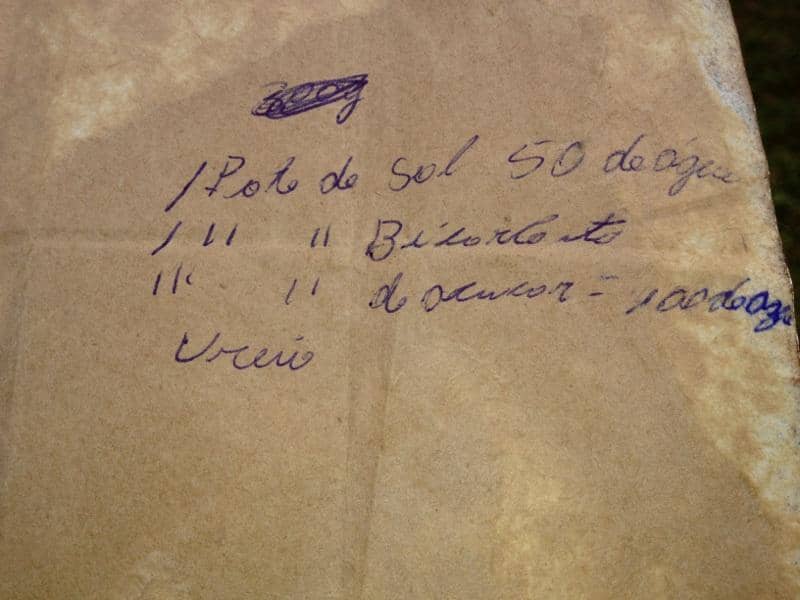 1 Pote de Sal 50 de água
1 " " Bicarbonato
" " de acucar = 100 de água